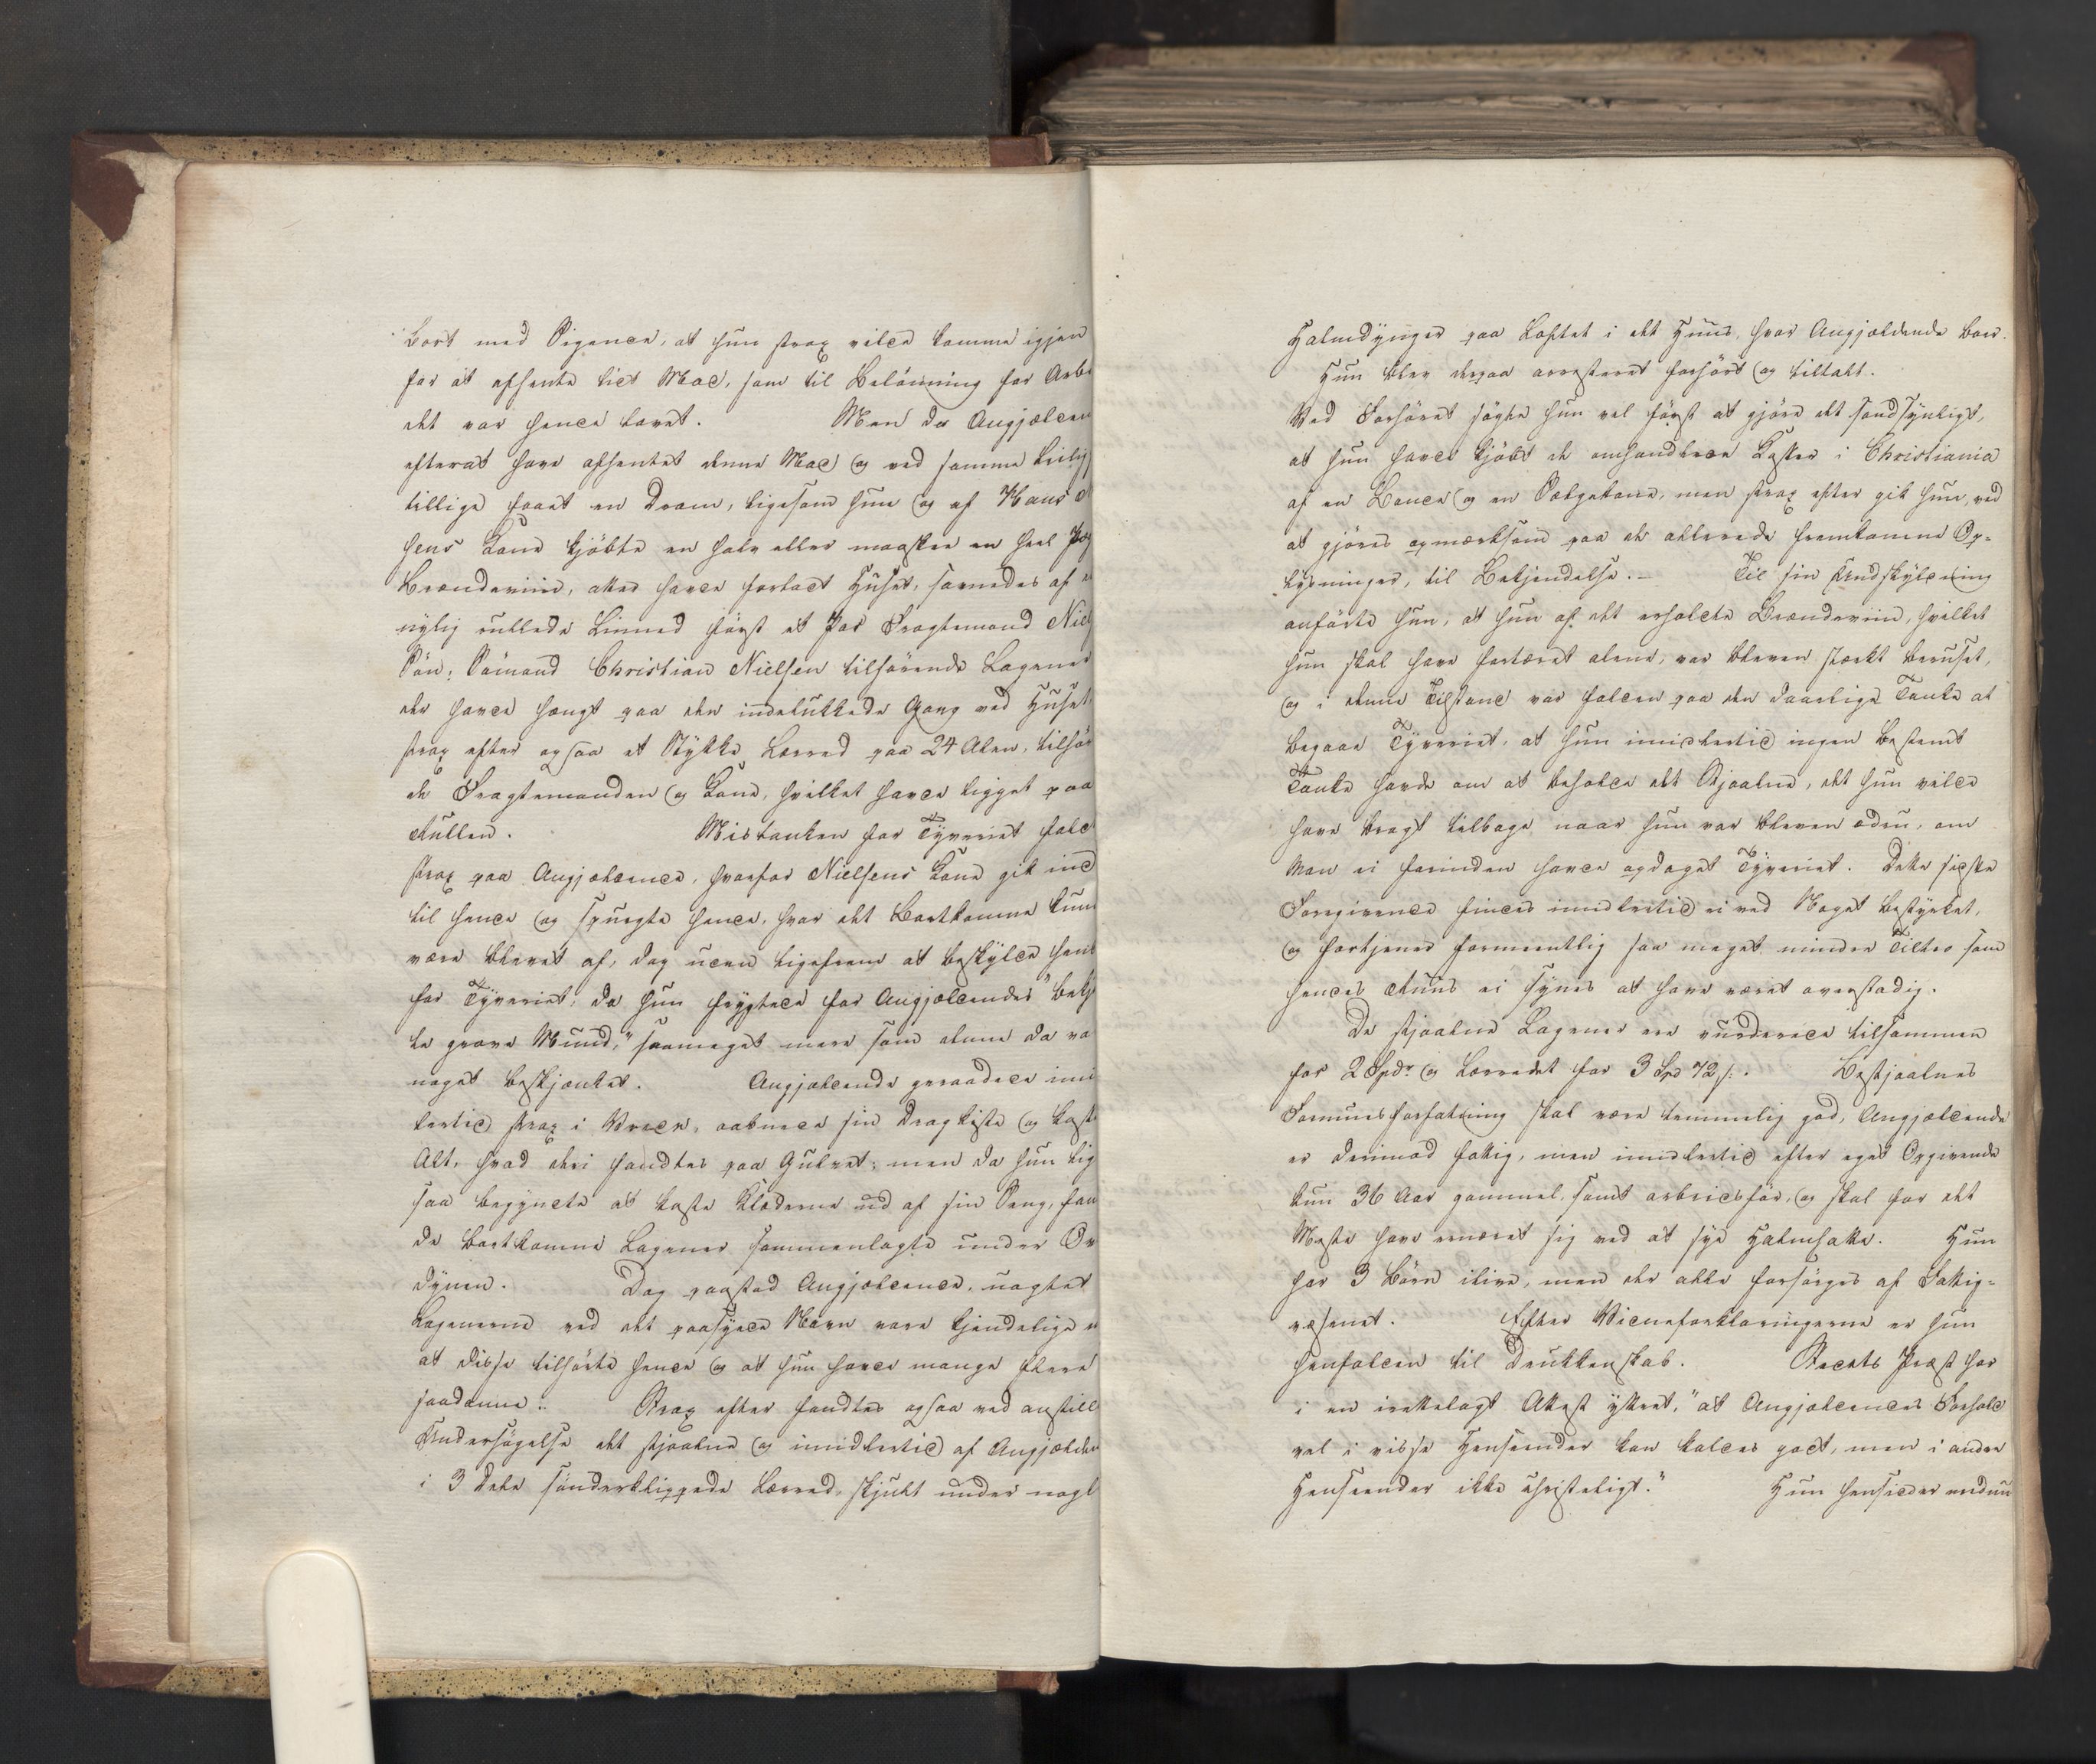 bort med Sigende, at hun strax vilde komme igjen
for at afhente lidt Mad, som til Belönning for Arbei
det var hende lovet. Men da Angjælden
efterat have afhentet denne Mad og ved samme Leilig
tillige faaet en Dram, ligesom hun og af Hans
sens Kone kjöbte en halv eller maaskee en heel Pæg
Brændeviin, atter havde forladt Huset, savnedes af
nylig rullede Linned först et Par Fragtemand Niel
Sön: Sömand Christian Nielsen tilhörende Lagener
der havde hængt paa den indelukkede Gang ved Huset,
strax efter ogsaa et Stykke Lærred paa 24 Alen, tilhör
de Fragtemanden og Kone, hvilket havde ligget paa
Rullen. Mistanken for Tyveriet faldt
strax paa Angjældende, hvorfor Nielsens Kone gik ind
til hende og spurgte hende, hvor det Bortkomne kun
være blevet af, dog uden ligefrem at beskylde hend
for Tyveriet, da hun frygtede for Angjældendes "bek
te grove Mund," saameget mere som denne da va
noget beskjænket. Angjældende geraadede imi
lertid strax i Vrede, aabnede sin Dragkiste og kaste
Alt, hvad deri fandtes paa Gulvet; men da hun lig
saa begyndte at kaste Klæderne ud af sin Seng, fan
de bortkomne Lagener sammenlagte under Ov
dynen. Dog paastod Angjældende, uagtet
Lagenerne ved det paasyede Navn vare kjendelige
at disse tilhörte hende og at hun havde mange flere
saadanne. Strax efter fandtes ogsaa ved anstill
Undersögelse det stjaalne og imidlertid af Angjælden
i 3 Dele sönderklippede Lærred, skjult under nogl
Halmdynger paa Loftet i det Huus, hvor Angjældende boer.
Hun blev derpaa arresteret forhört og tiltalt.
Ved Forhöret sögte hun vel först at gjöre det sandsynligt,
at hun havde kjöbt de omhandlede Koster i Christiania
af en Bonde og en Sælgekone, men strax efter gik hun, ved
at gjöres opmærksom paa de allerede fremkomne Op-
lysninger, til Bekjendelse. – Til sin Undskyldning
anförte hun, at hun af det erholdte Brændeviin, hvilket
hun skal have fortæret alene, var bleven stærkt beruset,
og i denne Tilstand var falden paa den daarlige Tanke at
begaae Tyveriet, at hun imidlertid ingen bestemt
Tanke havde om at beholde det Stjaalne, det hun vilde
have bragt tilbage naar hun var bleven ædru, om
man ei forinden havde opdaget Tyveriet. Dette sidste
Foregivende findes imidlertid ei ved Noget bestyrket,
og fortjener formeentlig saa meget mindre Tiltro som
hendes Ruus ei synes at have været overstadig.
De stjaalne Lagener ere vurderede tilsammen
for 2 Spdr og Lærredet for 3 Spd 72 s. Bestjaalnes
Formuesforfatning skal være temmelig god, Angjældende
er derimod fattig, men imidlertid efter eget Opgivende
kun 36 Aar gammel, samt arbeidsför, og skal for det
Meste have ernæret sig ved at sye Halmhatte. Hun
har 3 Börn ilive, men der alle forsörges af Fattig-
væsenet. Efter Vidneforklaringerne er hun
henfalden til Drukkenskab. Stedets Præst har
i en irettelagt Attest yttret, "at Angjældendes Forhold
vel i visse Henseender kan kaldes godt, men i andre
Henseender ikke christeligt." Hun hensidder endnu